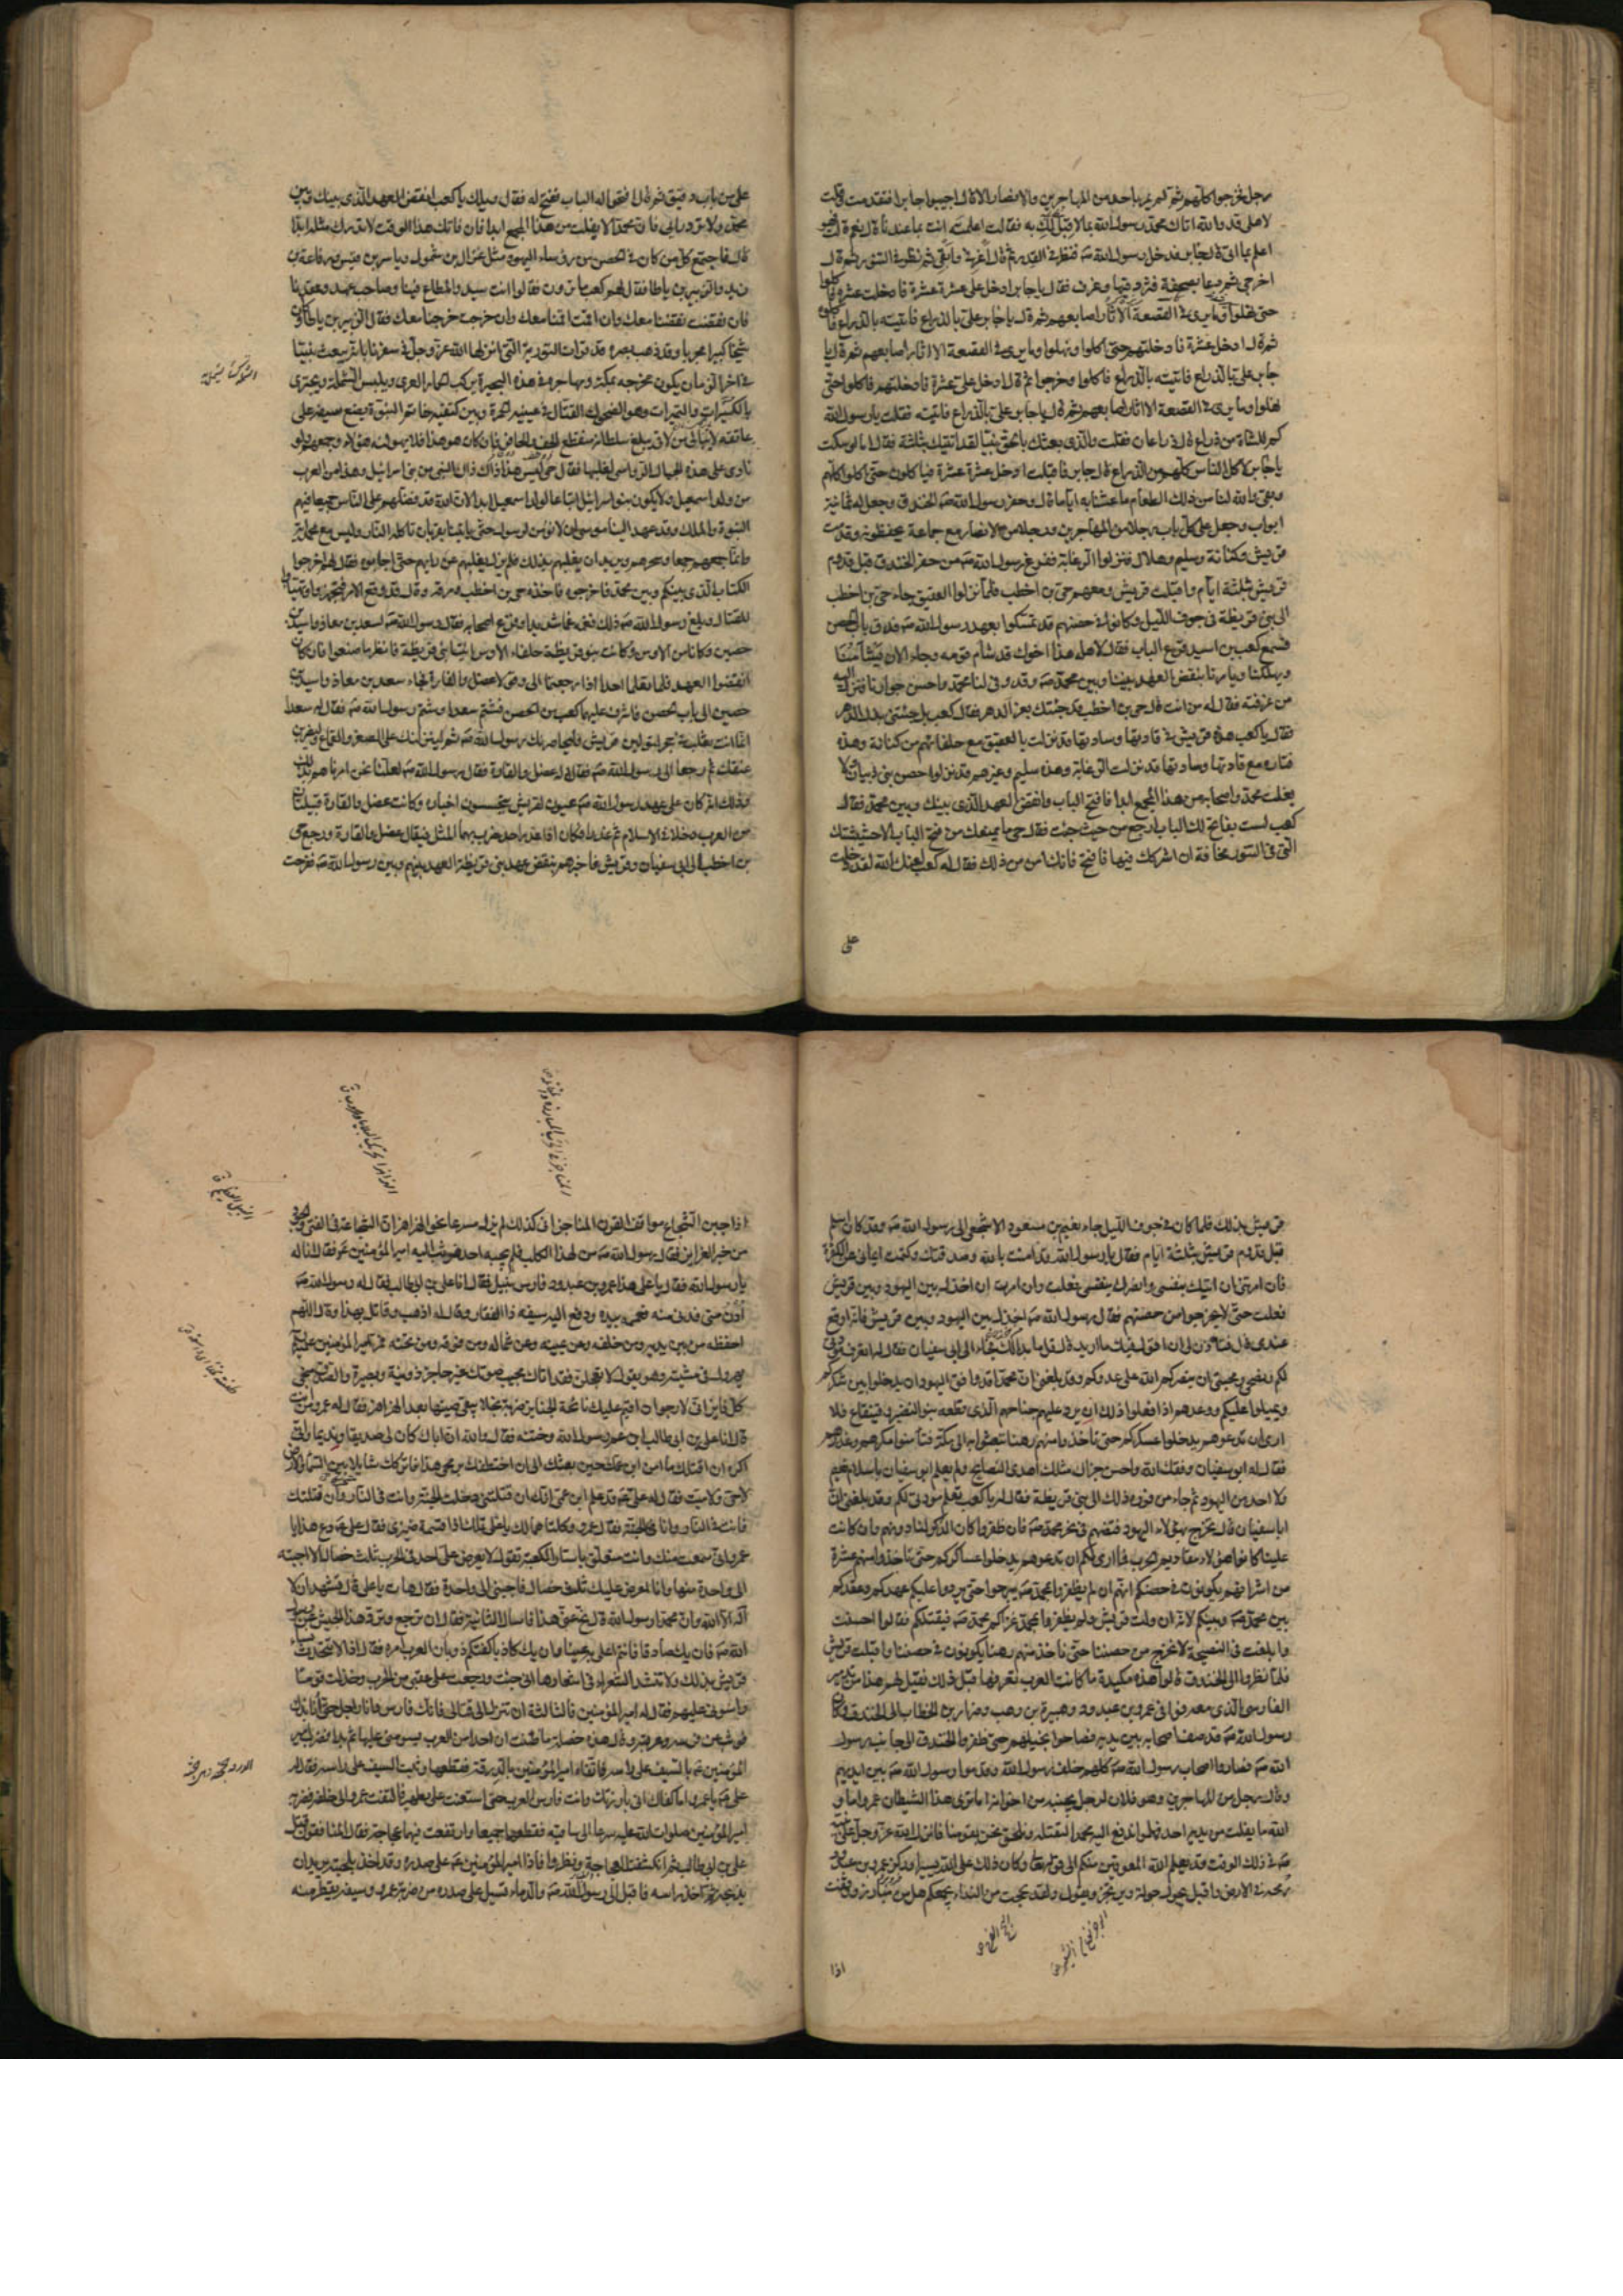 رجل فخرجوا كلهم ثم لم يمر باحد من المهاجرين والانصار الا قال اجيبوا جابرا فتقدمت وقلت
لاهلي قد والله اتاك محمد رسول الله بما لا قبل لك به فقالت اعلمته انت بما عندنا قال نعم قالت هو
اعلم بما اتى قال جابر فدخل رسول الله صه فنظر في القدر ثم قال اغرفي وابقي ثم نظر في التنور ثم قال
اخرجي ثم دعا بصحفة فثرد فيها وغرف فقال يا جابر ادخل علي عشرة عشرة فادخلت عشرة فاكلوا
حتى نهلوا وما يرى في القصعة الا آثار اصابعهم ثم قال يا جابر علي بالذراع فاتيته بالذراع فاكلوه
ثم قال ادخل عشرة فادخلتهم حتى اكلوا ونهلوا وما يرى في القصعة الا اثار اصابعهم ثم قال يا
جابر علي بالذراع فاتيته بالذراع فاكلوا وخرجوا ثم قال ادخل علي عشرة فادخلتهم فاكلوا حتى
نهلوا وما يرى في القصعة الا اثار اصابعهم ثم قال يا جابر علي بالذراع فاتيته فقلت يا رسول الله
كم للشاة من ذراع قال ذراعان فقلت والذي بعثك بالحق نبيا لقد اتيتك بثلثة فقال اما لو سكت
يا جابر لاكل الناس كلهم من الذراع قال جابر فاقبلت ادخل عشرة عشرة فياكلون حتى اكلوا كلهم
وبقي والله لنا من ذلك الطعام ما عشنا به اياما قال وحفر رسول الله صه الخندق وجعل له ثمانية
ابواب وجعل على كل باب رجلا من المهاجرين ورجلا من الانصار مع جماعة يحفظونه وقدمت
قريش وكنانة وسليم وهلال فنزلوا الزغابة ففرغ رسول الله صه من حفر الخندق قبل قدوم
قريش بثلثة ايام واقبلت قريش ومعهم حي بن اخطب فلما نزلوا العقيق جاء حي بن اخطب
الى بني قريظة في جوف الليل وكانوا في حصنهم قد تمسكوا بعهد رسول الله صه فدق باب الحصن
فسمع كعب بن اسيد قرع الباب فقال لاهله هذا اخوك قد شأم قومه وجاء الان يشأمنا
ويهلكنا ويامرنا بنقض العهد بيننا وبين محمد صه وقد وفى لنا محمد واحسن جوارنا فنزل اليه
من غرفته فقال له من انت قال حي بن اخطب قد جئتك بعز الدهر فقال كعب بل جئتني بذل الدهر
فقال يا كعب هذه قريش في قادتها وسادتها قد نزلت بالعقيق مع حلفائهم من كنانة وهذه
فزارة مع قادتها وسادتها قد نزلت الزغابة وهذه سليم وغيرهم قد نزلوا حصن بني ذبيان ولا
يفلت محمد واصحابه من هذا الجمع ابدا فافتح الباب وانقض العهد الذي بينك وبين محمد فقال
كعب لست بفاتح لك الباب ارجع من حيث جئت فقال حي ما يمنعك من فتح الباب الا حشيشتك
التي في التنور مخافة ان اشركك فيها فافتح فانك آمن من ذلك فقال له كعب لعنك الله لقد دخلت
على
علي من باب دقيق ثم قال افتحوا له الباب ففتح له فقال ويلك يا كعب انقض العهد الذي بينك وبين
محمد ولا ترد رايي فان محمدا لا يفلت من هذا الجمع ابدا فان فاتك هذا الوقت لا تدرك مثله ابدا
قال فاجتمع كل من كان في الحصن من رؤساء اليهود مثل غزال بن شمول وياسر بن قيس ورفاعة بن
زيد والزبير بن ياطا فقال لهم كعب ما ترون فقالوا انت سيدنا والمطاع فينا وصاحب عهدنا وعقدنا
فان نقضت نقضنا معك وان اقمت اقمنا معك وان خرجت خرجنا معك فقال الزبير بن ياطا وكان
شيخا كبيرا مجربا وقد ذهب بصره قد قرات التورية التي انزلها الله عز وجل في سفرنا بانه يبعث نبيا
في اخر الزمان يكون مخرجه بمكة ومهاجره في هذه البحيرة يركب الحمار العري ويلبس الشملة ويجتزي
بالكسيرات والتميرات وهو الضحوك القتال في عينيه الحمرة وبين كتفيه خاتم النبوة يضع سيفه على
عاتقه لا يبالي من لاقى يبلغ سلطانه منقطع الخف والحافر فان كان هو هذا فلا يهولنه هؤلاء وجمعهم ولو
ناوى على هذه الجبال الرواسي لغلبها فقال حي ليس هذا ذاك ذاك النبي من بني اسرائيل وهذا من العرب
من ولد اسمعيل ولا يكون بنو اسرائيل اتباعا لولد اسمعيل ابدا لان الله قد فضلهم على الناس جميعا فيهم
النبوة والملك وقد عهد الينا موسى ان لا نؤمن لرسول حتى ياتينا بقربان تاكله النار وليس مع محمد آية
وانما جمعهم جمعا وسحرهم ويريد ان يغلبهم بذلك فلم يزل يقلبهم عن رايهم حتى اجابوه فقال لهم اخرجوا
الكتاب الذي بينكم وبين محمد فاخرجوه فاخذه حي بن اخطب ومزقه وقال قد وقع الامر فتجهزوا وتهيأوا
للقتال وبلغ رسول الله صه ذلك فغمه غما شديدا وفزع اصحابه فقال رسول الله صه لسعد بن معاذ واسيد بن
حصين وكانا من الاوس وكانت بنو قريظة حلفاء الاوس ائتيا بني قريظة فانظرا ما صنعوا فان كانوا
انقضوا العهد فلا تعلما احدا اذا رجعتما الي وقولا عضل والقارة فجاء سعد بن معاذ واسيد بن
حصين الى باب الحصن فاشرف عليهما كعب من الحصن فشتم سعدا وشتم رسول الله صه فقال له سعد
انما انت ثعلب في جحر لتولين قريش وليحاصرنك رسول الله صه ثم لينزلنك على الصغر والقماع وليضربن
عنقك ثم رجعا الى رسول الله صه فقالا له عضل والقارة فقال رسول الله صه لعلنا نحن امرناهم بذلك
وذلك انه كان على عهد رسول الله صه عيون لقريش يتجسسون اخباره وكانت عضل والقارة قبيلتان
من العرب دخلا في الاسلام ثم غدرا فكان اذا غدر احد ضرب بهما المثل فيقال عضل والقارة ورجع حي
بن اخطب الى ابي سفيان وقريش فاخبرهم بنقض عهد بني قريظة العهد بينهم وبين رسول الله صه ففرحت
قريش بذلك فلما كان في جوف الليل جاء نعيم بن مسعود الاشجعي الى رسول الله صه وقد كان اسلم
قبل قدوم قريش بثلثة ايام فقال يا رسول الله قد امنت بالله وصدقتك وكتمت ايماني عن الكفرة
فان امرتني ان اتيك بنفسي وانصرك بنفسي فعلت وان امرت ان اخذل بين اليهود وبين قريش
فعلت حتى لا يخرجوا من حصنهم فقال رسول الله صه اخذل بين اليهود وبين قريش فانه اوقع
عندي قال فتاذن لي ان اقول فيك ما اريد قال قل ما بدا لك فجاء الى ابي سفيان فقال له تعرف مودتي
لكم ونصحي ومحبتي ان ينصركم الله على عدوكم وقد بلغني ان محمدا قد وافق اليهود ان يدخلوا بين عسكركم
ويميلوا عليكم ووعدهم اذا فعلوا ذلك ان يرد عليهم جناحهم الذي قطعه بنو النضير وقينقاع فلا
ارى ان تدعوهم يدخلوا عسكركم حتى تاخذوا منهم رهنا تبعثوا به الى مكة فتأمنوا مكرهم وغدرهم
فقال له ابو سفيان وفقك الله واحسن جزاك مثلك اهدى النصائح ولم يعلم ابو سفيان باسلام نعيم
ولا احد من اليهود ثم جاء من فوره ذلك الى بني قريظة فقال له يا كعب تعلم مودتي لكم وقد بلغني ان
ابا سفيان قال نخرج بهؤلاء اليهود فنضعهم في نحر محمد صه فان ظفروا كان الذكر لنا دونهم وان كانت
علينا كانوا هؤلاء مقاديم الحرب فما ارى لكم ان تدعوهم يدخلوا عساكركم حتى تاخذوا منهم عشرة
من اشرافهم يكونون في حصنكم انهم ان لم يظفروا بمحمد صه لم يبرحوا حتى يردوا عليكم عهدكم وعقدكم
بين محمد صه وبينكم لانه ان ولت قريش ولم يظفروا بمحمد غزاكم محمد صه فيقتلكم فقالوا احسنت
وابلغت في النصيحة لا نخرج من حصننا حتى ناخذ منهم رهنا يكونون في حصننا واقبلت قريش
فلما نظروا الى الخندق قالوا هذه مكيدة ما كانت العرب تعرفها قبل ذلك فقيل لهم هذا من تدبير
الفارسي الذي معه فوافى عمرو بن عبدود وهبيرة بن وهب وضرار بن الخطاب الى الخندق وكان
رسول الله صه قد صف اصحابه بين يديه فصاحوا بخيلهم حتى طفروا الخندق الى جانب رسول
الله صه فصاروا اصحاب رسول الله صه كلهم خلف رسول الله وقدموا رسول الله صه بين ايديهم
وقال رجل من المهاجرين وهو فلان لرجل بجنبه من اخوانه اما ترى هذا الشيطان عمرو اما و
الله ما يفلت من يديه احد فهلموا ندفع اليه محمدا ليقتله ونلحق نحن بقومنا فانزل الله عز وجل على نبيه
صه في ذلك الوقت قد يعلم الله المعوقين منكم الى قوله تعالى وكان ذلك على الله يسيرا وركز عمرو بن عبدود
رمحه في الارض واقبل يجول جولة ويرتجز ويقول ولقد بححت من النداء بجمعكم هل من مبارز ووقفت
اذا
اذا جبن الشجاع مواقف القرن المناجز اني كذلك لم ازل متسرعا نحو الهزاهز ان الشجاعة في الفتى والجود
من خير الغرايز فقال رسول الله صه من لهذا الكلب فلم يجبه احد فوثب اليه امير المؤمنين عم فقال انا له
يا رسول الله فقال يا علي هذا عمرو بن عبدود فارس يليل فقال انا علي بن ابي طالب فقال له رسول الله صه
ادن مني فدنى منه فعممه بيده ودفع اليه سيفه ذا الفقار وقال له اذهب وقاتل بهذا وقال اللهم
احفظه من بين يديه ومن خلفه وعن يمينه وعن شماله ومن فوقه ومن تحته فمر امير المؤمنين عم
يهرول في مشيته وهو يقول لا تعجلن فقد اتاك مجيب صوتك غير عاجز ذو نية وبصيرة والصدق منجي
كل فايز اني لارجو ان اقيم عليك نائحة الجنايز من ضربة نجلاء يبقى صيتها بعد الهزاهز فقال له عمرو من انت
قال انا علي بن ابي طالب ابن عم رسول الله وختنه فقال والله ان اباك كان لي صديقا ونديما واني
اكره ان اقتلك ما امن ابن عمك حين بعثك الي ان اختطفك برمحي هذا فاتركك شايلا بين السماء والارض
لا حي ولا ميت فقال له علي عم قد علم ابن عمي انك ان قتلتني دخلت الجنة وانت في النار وان قتلتك
فانت في النار وانا في الجنة فقال عمرو وكلتاهما لك يا علي تلك اذا قسمة ضيزى فقال علي عم دع هذا يا
عمرو اني سمعت منك وانت متعلق باستار الكعبة تقول لا يعرض علي احد في الحرب ثلث خصال الا اجبته
الى واحدة منها وانا اعرض عليك ثلث خصال فاجبني الى واحدة فقال هات يا علي قال تشهد ان لا
اله الا الله وان محمدا رسول الله قال نح عني هذا فاسال الثانية فقال ان ترجع وترد هذا الجيش عن رسول
الله صه فان يك صادقا فانتم اعلى به عينا وان يك كاذبا كفتكم ذوبان العرب امره فقال اذا لا تتحدث نساء
قريش بذلك ولا تنشد الشعراء في اشعارها اني جبنت ورجعت على عقبي من الحرب وخذلت قوما
راسوني عليهم فقال له امير المؤمنين فالثالثة ان تنزل الى قتالي فانك فارس وانا راجل حتى انابذك
فوثب عن فرسه وعرقبه وقال هذه خصلة ما ظننت ان احدا من العرب يسومني عليها ثم بدا فضرب امير
المؤمنين عم بالسيف على راسه فاتقاه امير المؤمنين بالدرقة فقطعها وثبت السيف على راسه فقال له
علي عم يا عمرو اما كفاك اني بارزتك وانت فارس العرب حتى استعنت علي بظهير فالتفت عمرو الى خلفه فضربه
امير المؤمنين صلوات الله عليه مسرعا الى ساقيه فقطعهما جميعا وارتفعت بينهما عجاجة فقال المنافقون قتل
علي بن ابي طالب ثم انكشفت العجاجة ونظروا فاذا امير المؤمنين عم على صدره وقد اخذ بلحيته يريد ان
يذبحه ثم اخذ راسه فاقبل الى رسول الله صه والدماء تسيل على صدره من ضربة عمرو وسيفه يقطر منه